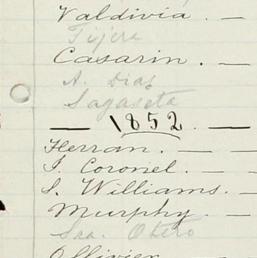 Valdivia. —
Tijera
Casarin. —
A. Dias
Sagaseta
— 1852. —
Herran. —
I. Coronel. —
S. Williams. —
Murphy. —
Sra. Otero
Ollivier